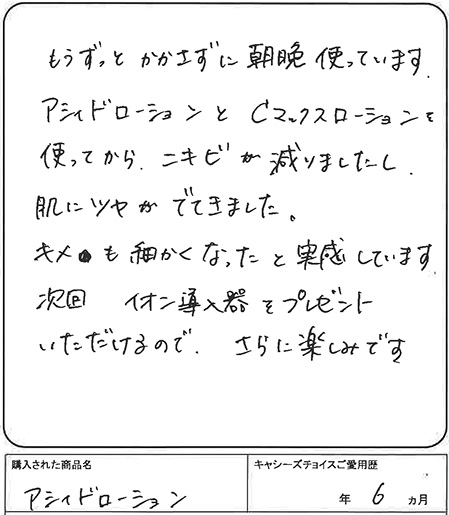 もうずっと かかさずに 朝晩 使っています.
アシィドローション と Cマックスローションを
使ってから. ニキビが 減りましたし.
肌にツヤが でてきました。
キメ も 細かくなったと実感しています.
次回 イオン導入器をプレゼント
いただけるので. さらに楽しみです
購入された商品名
アシィドローション
キャシーズチョイスご愛用歴
年 6 ヵ月